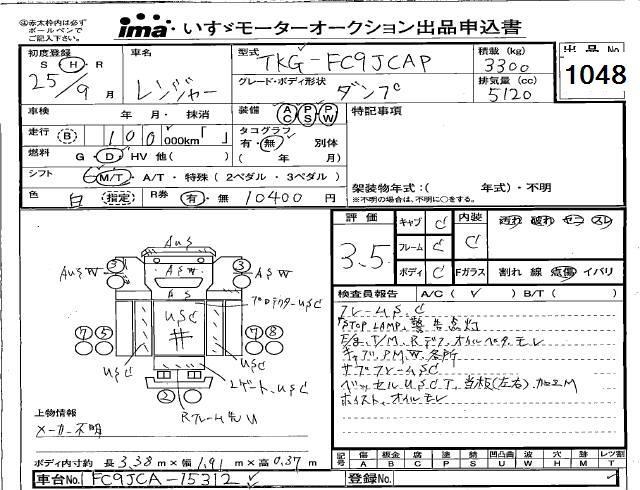 ㊟赤太枠内は必ず
ボールペンで
ご記入下さい。
ima いすゞモーターオークション出品申込書
初度登録 車名 型式 積載 (kg) 出品 No
S H・R レンジャー TKG-FC9JCAP 3300 1048
25/9月 グレード・ボディ形状 ダンプ 排気量 (cc) 5120
車検 年 月・抹消 装備 AC PS PW 特記事項
走行 B 100 000km「 」 タコグラフ 有・無 別体
燃料 G・D・HV 他( ) ( 年 月)
シフト M/T・A/T・特殊 (2ペダル・3ペダル)
架装物年式:( 年式)・不明
※不明の場合は、不明に○をする。
色 白 指定 R券 有・無 10400円
評価 3.5 キャブ C 内装 C 汚れ 破れ セニ スレ
フレーム C
ボディ C Fガラス 割れ 線 点傷 イバリ
検査員報告 A/C( ✓ ) B/T( )
フレームS.C
STOP LAMP、警告点灯
E/g、T/M、Rデフ、オイルベタ、モレ
キャブ、P.M.W.各所
サブフレームSC
ベッセルU.S.C.T、当板(左右)、加工M
ホイスト、オイルモレ
AUS
3 3
AUSW ASW ASW
AS
プロテクターUSC
USC
7 5 7 8
USC USC
2ゲートUSC
2
Rフレーム先U
上物情報
メーカー不明
ボディ内寸約 長 3.38m×幅 1.91m×高 0.37m
記号 傷 A 板金 B 腐 C 塗 P 錆 S 凹凸曲 U 波 W 穴 H 跡 M 欠 T レツ割
車台No. FC9JCA-15312 登録No.